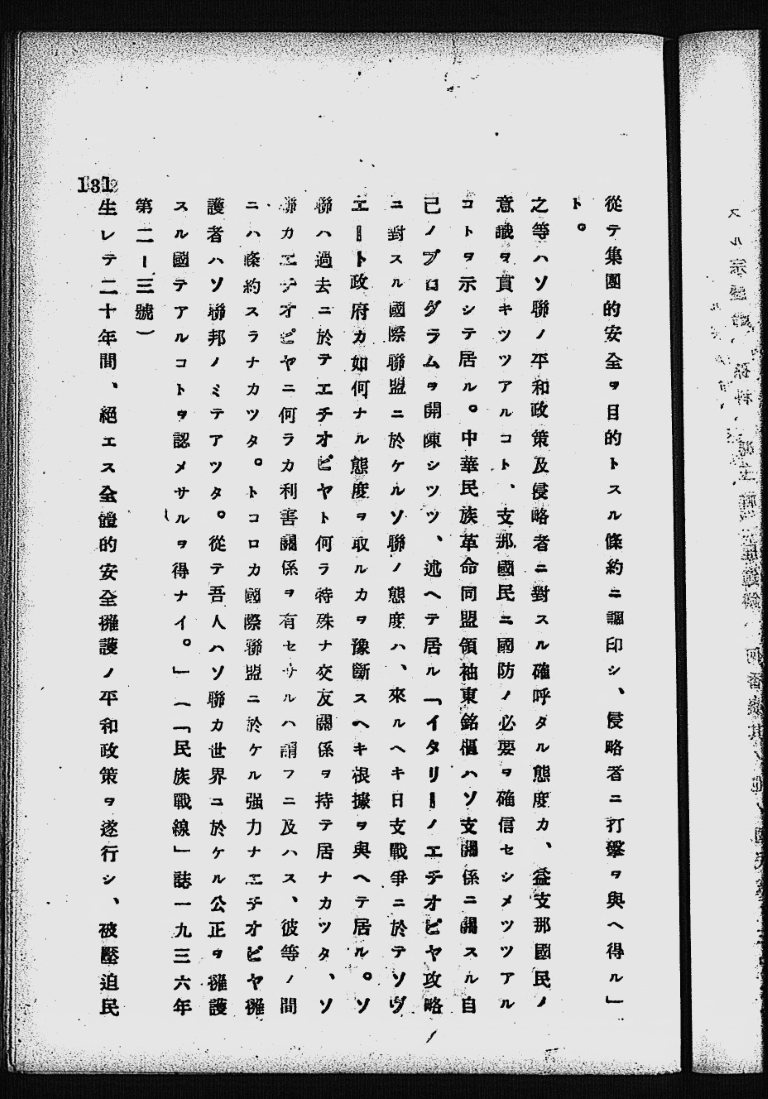 從テ集團的安全ヲ目的トスル條約ニ調印シ、侵略者ニ打擊ヲ與ヘ得ル」
ト。
之等ハソ聯ノ平和政策及侵略者ニ對スル確呼タル態度カ、益支那國民ノ
意識ヲ貫キツツアルコト、支那國民ニ國防ノ必要ヲ確信セシメツツアル
コトヲ示シテ居ル。中華民族革命同盟領袖東銘樞ハソ支關係ニ關スル自
己ノプログラムヲ開陳シツツ、述ヘテ居ル「イタリーノエチオピヤ攻略
ニ對スル國際聯盟ニ於ケルソ聯ノ態度ハ、來ルヘキ日支戰爭ニ於テソヴ
エート政府カ如何ナル態度ヲ取ルカヲ豫斷スヘキ根據ヲ與ヘテ居ル。ソ
聯ハ過去ニ於テエチオピヤト何ラ特殊ナ交友關係ヲ持テ居ナカツタ、ソ
聯カエチオピヤニ何ラカ利害關係ヲ有セサルハ謂フニ及ハス、彼等ノ間
ニハ條約スラナカツタ。トコロカ國際聯盟ニ於ケル强力ナエチオピヤ擁
護者ハソ聯邦ノミテアツタ。從テ吾人ハソ聯カ世界ニ於ケル公正ヲ擁護
スル國テアルコトヲ認メサルヲ得ナイ。」（「民族戰線」誌一九三六年
第二ー三號）
生レテ二十年間、絕エス全體的安全擁護ノ平和政策ヲ遂行シ、被壓迫民